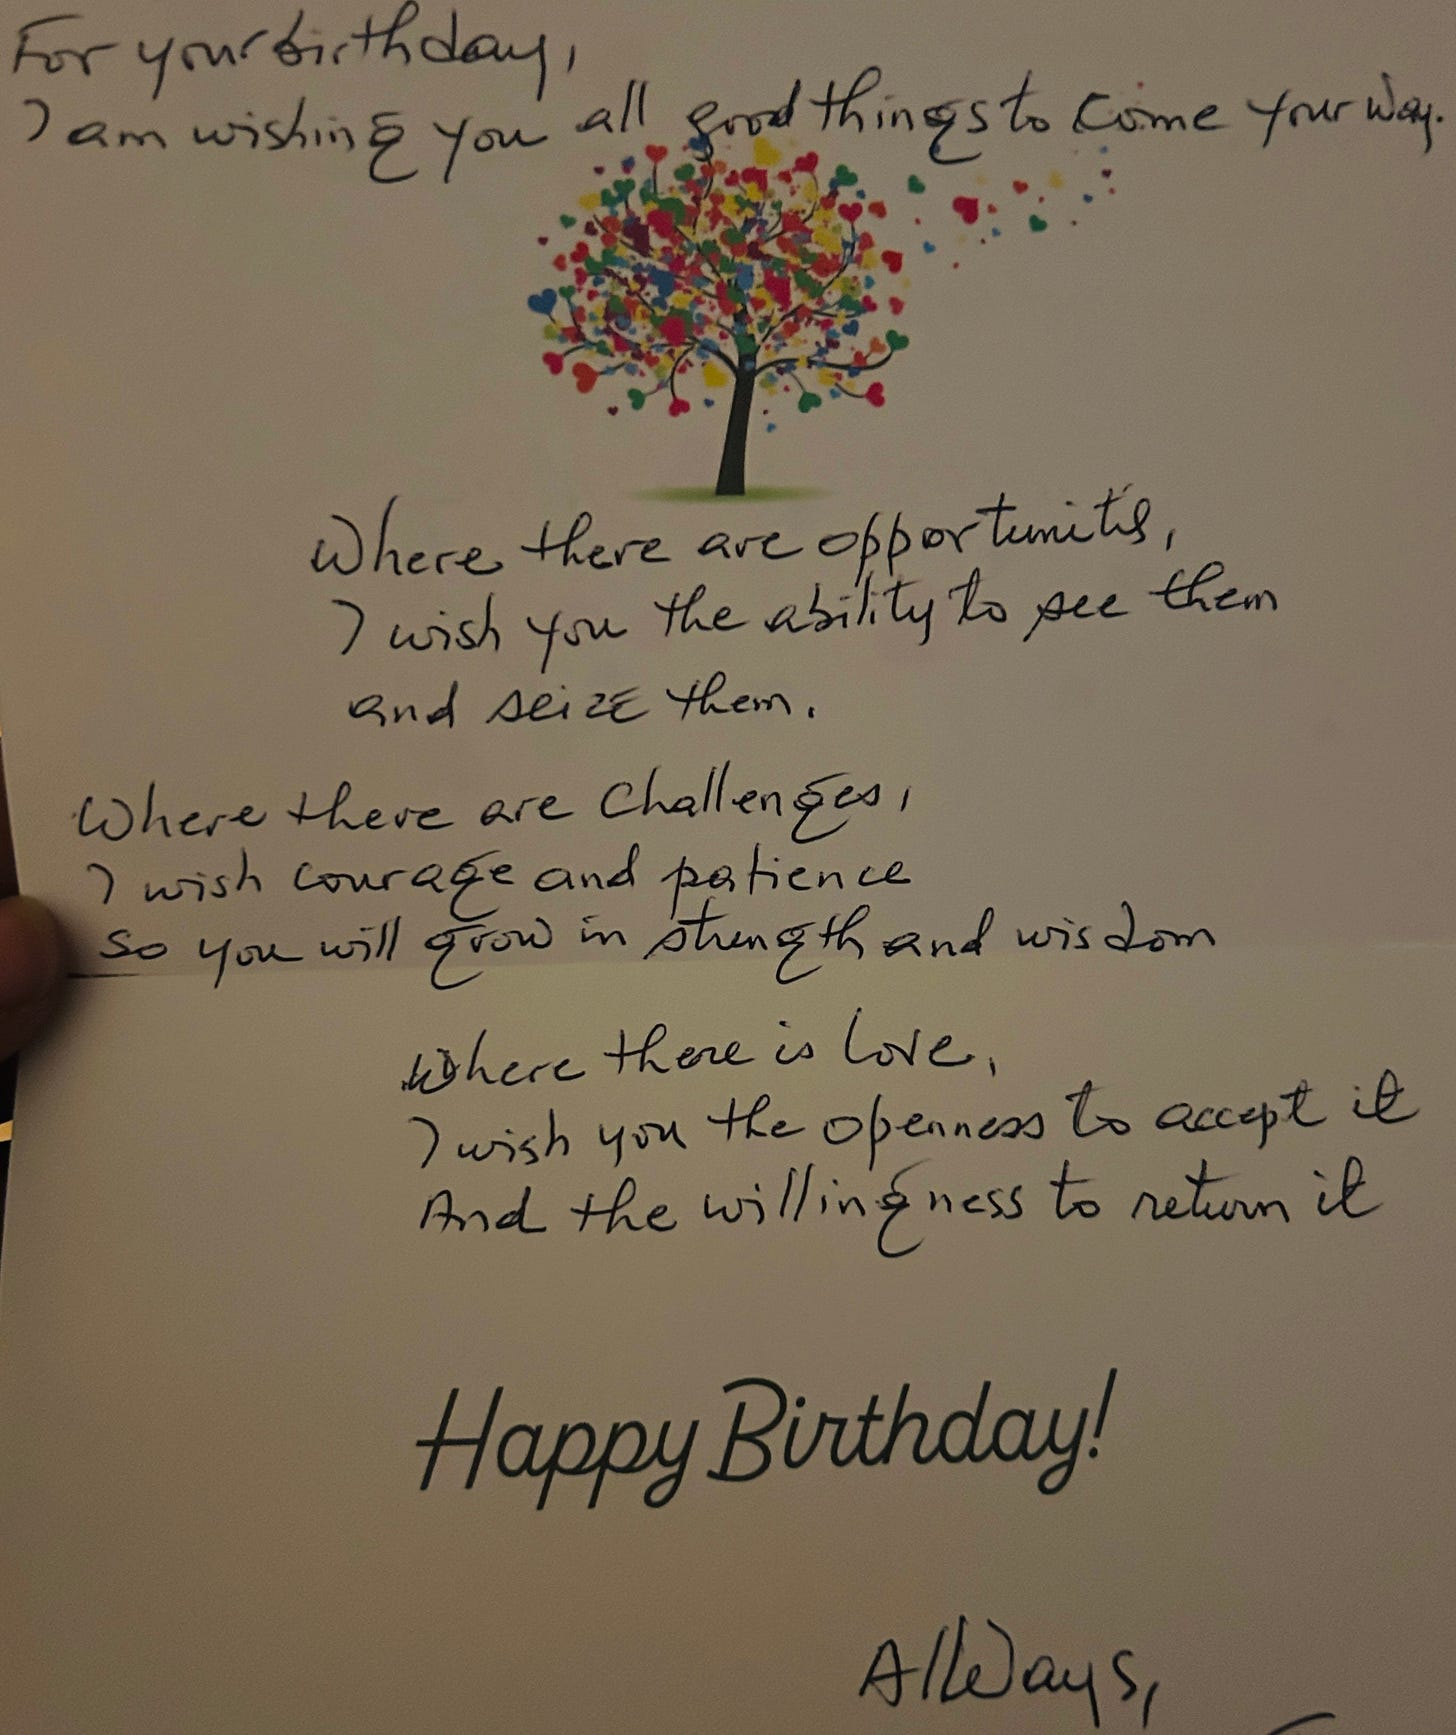 For your birthday,
I am wishing you all good things to come your way.
Where there are opportunitis,
I wish you the ability to see them
and seize them.
Where there are challenges,
I wish courage and patience
so you will grow in strength and wisdom
Where there is love,
I wish you the openness to accept it
And the willingness to return it
Happy Birthday!
AllWays,